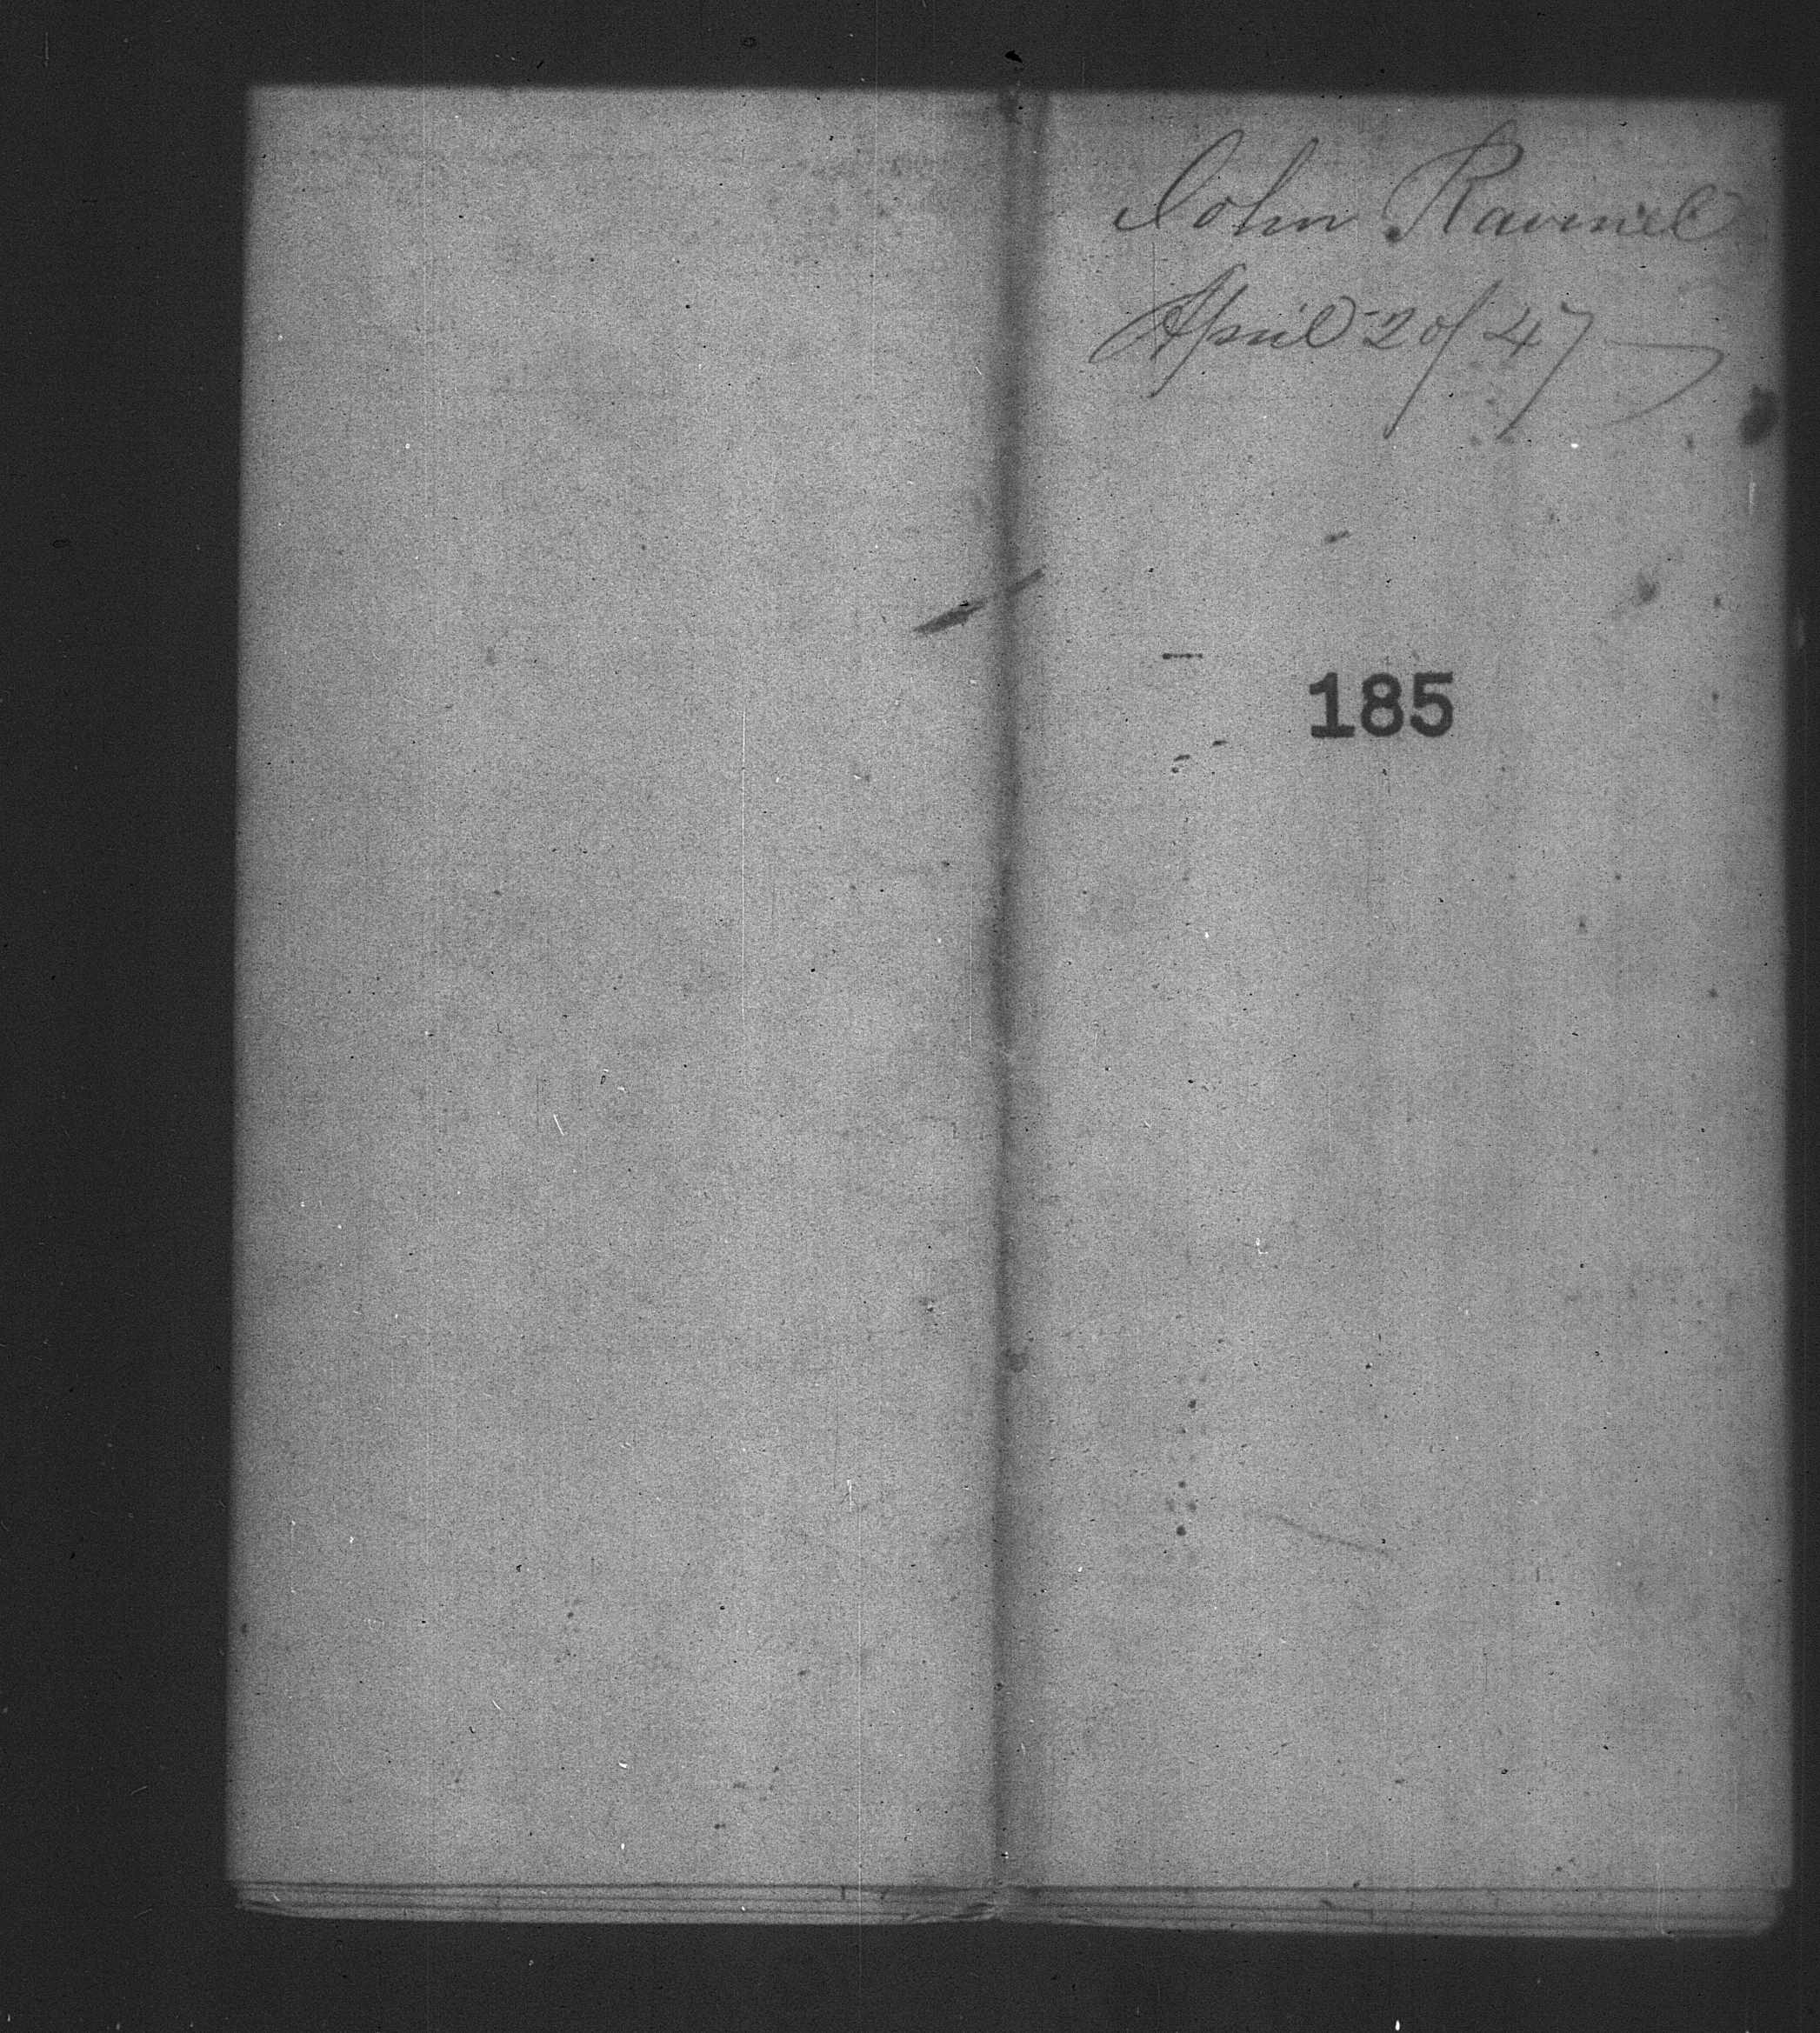 John Ravenel
April 20/47
185